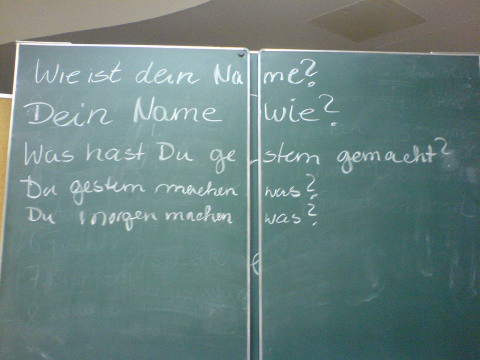 Wie ist dein Name?
Dein Name wie?
Was hast Du gestern gemacht?
Du gestern machen was?
Du morgen machen was?